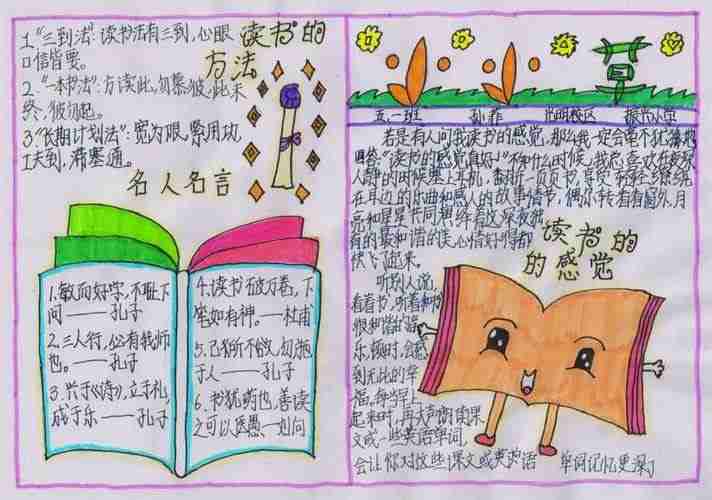 读书的
方法
1."三到法":读书法有三到,心眼
口信皆要。
2."一本书法":方读此,勿慕彼,此未
终,彼勿起。
3."长期计划法":宽为限,紧用功,
工夫到,滞塞通。
名人名言
1.敏而好学,不耻下
问——孔子
2.三人行,必有我师
也。——孔子
3.兴于《诗》,立于礼,
成于乐——孔子
4.读书破万卷,下
笔如有神。——杜甫
5.己所不欲,勿施
于人——孔子
6.书犹药也,善读
之可以医愚——刘向
五一班
振书小学
读书的
的感觉
若是有人问我读书的感觉,那么我一定会毫不犹
回答:"读书的感觉真好!"不
人静的时候
在耳边的乐曲和感人的故事情节,偶尔转看看窗外,月
亮和星星共同
有的最和谐的美心情好得都
快飞起来。
听别人说,
看着书,听着和
很和谐的音
乐,顿时,会感
到无比的幸
福。每当早上
起来时,再大声朗读课
文或一些英语单词,
会让你对这些课文或英语 单词记忆更深